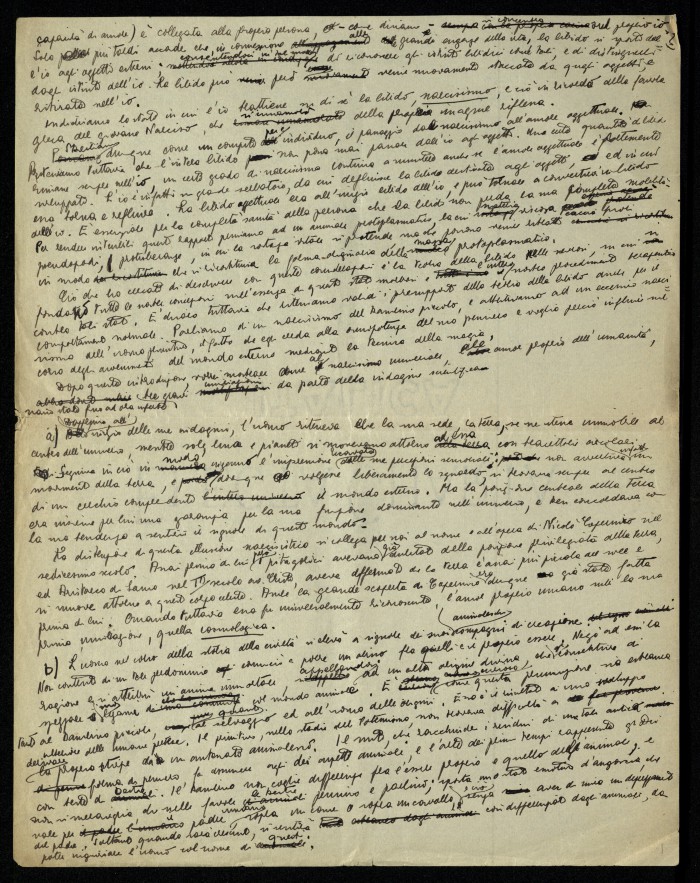 capacità di amare) è collegata alla propria persona,
Solo più tardi accade che, in connessione alle grandi esigenze della vita, la libido si sposti dall'
l'io agli oggetti esterni di riconoscere gli istinti libidici come tali, e di distinguerli
dagli istinti dell'io. La libido può però venire nuovamente staccata da questi oggetti, e
ritirata nell'io.
Indichiamo lo stato in cui l'io trattiene in di sé la libido, narcisismo, e ciò in ricordo della favola
greca del giovane Narciso, che si innamorò della propria imagine riflessa.
dunque come un compito individuo, il passaggio dal narcisismo all'amore oggettuale.
Riteniamo tuttavia che l'intera libido non possa mai passare dall'io agli oggetti. Una certa quantità di libido
rimane sempre nell'io, un certo grado di narcisismo continua a sussistere anche se l'amore oggettuale è fortemente
sviluppato. L'io è infatti un grande serbatoio, da cui defluisce la libido destinata agli oggetti, ed in cui
essa torna a refluire. La libido oggettuale era all'inizio libido dell'io, e può tornare a convertirsi in libido
dell'io. È essenziale per la completa sanità della persona che la libido non perda la sua completa mobilità.
Per rendere intuibili questi rapporti pensiamo ad un animale protoplasmatico, la cui vischiosa
pseudopodi, protuberanze, in cui la sostanza vitale si protende ma che possono venir ritirati
in modo che si ricostituisca la forma originaria della massa protoplasmatica.
Ciò che ho cercato di descrivere con queste considerazioni è la teoria della libido delle nevrosi, su cui si
fondano tutte le nostre concezioni sull'essenza di questi stati morbosi e il nostro procedimento terapeutico
contro tali stati. È chiaro tuttavia che riteniamo validi i presupposti della teoria della libido anche per il
comportamento normale. Parliamo di un narcisismo del bambino piccolo, e attribuiamo ad un eccessivo narci-
sismo dell'uomo primitivo, il fatto che egli creda alla onnipotenza del suo pensiero e voglia perciò influire sul
corso degli avvenimenti del mondo esterno mediante la tecnica della magia.
Dopo questa introduzione vorrei mostrare come al narcisismo universale, all'amor proprio dell'umanità,
tre gravi umiliazioni da parte della indagine scientifica
siano state fino ad ora inferte.
a) inizio delle sue indagini, l'uomo riteneva che la sua sede, la terra, se ne stesse immobile al
centro dell'universo, mentre sole, luna e pianeti si muovevano attorno ad essa con traiettorie circolari.
Seguiva in ciò in modo ingenuo l'impressione delle sue percezioni sensoriali; non avvertiva infatti un
movimento della terra, e dovunque volgesse liberamente lo sguardo, si trovava sempre al centro
di un cerchio comprendente il mondo esterno. Ma la posizione centrale della terra
era insieme per lui una garanzia per la sua funzione dominante nell'universo, e ben concordava con
la sua tendenza a sentirsi il signore di questo mondo.
La distruzione di questa illusione narcisistica si collega per noi al nome e all'opera di Nicolò Copernico nel
sedicesimo secolo. Assai prima di lui i pitagorici avevano già dubitato della posizione privilegiata della terra,
ed Aristarco di Samo nel III secolo av. Cristo, aveva affermato che la terra è assai più piccola del sole e
si muove attorno a quest corpo celeste. Anche la grande scoperta di Copernico era dunque già stata fatta
prima di lui. Quando tuttavia essa fu universalmente riconosciuta, l'amor proprio umano subì la sua
prima umiliazione, quella cosmologica.
b) L'uomo nel corso della storia della civiltà si elevò a signore dei suoi compagni di creazione animaleschi.
Non contento di un tale predominio cominciò a porre un abisso fra quelli e il proprio essere. Negò ad essi la
ragione e si attribuì un'anima immortale, appellandosi ad un'alta origine divina che gli consentiva di
spezzare il legame col mondo animale. È che questa presunzione sia estranea
tanto al bambino piccolo, quanto al selvaggio ed all'uomo delle origini. Essa è il risultato di uno sviluppo
ulteriore delle umane pretese. Il primitivo, nello stadio del totemismo non trovava difficoltà a
derivare la propria stirpe da un antenato animalesco. Il mito, che racchiude i residui di antichi
forma di pensiero fa assumere agli dei aspetti animali, e l'arte dei primi tempi rappresenta gli dei
con testa di bestia. Il bambino non coglie differenze fra l'essere proprio e quello dell'animale; e
non si meraviglia che nelle favole le bestie pensino e parlino; sposta uno stato emotivo d'angoscia che
vale per il padre umano sopra un cane o sopra un cavallo, senza aver di mira un deprezzamento
del padre. Soltanto quando sarà cresciuto, si sentirà così differenziato dagli animali, da
poter ingiuriare l'uomo col nome di questi.